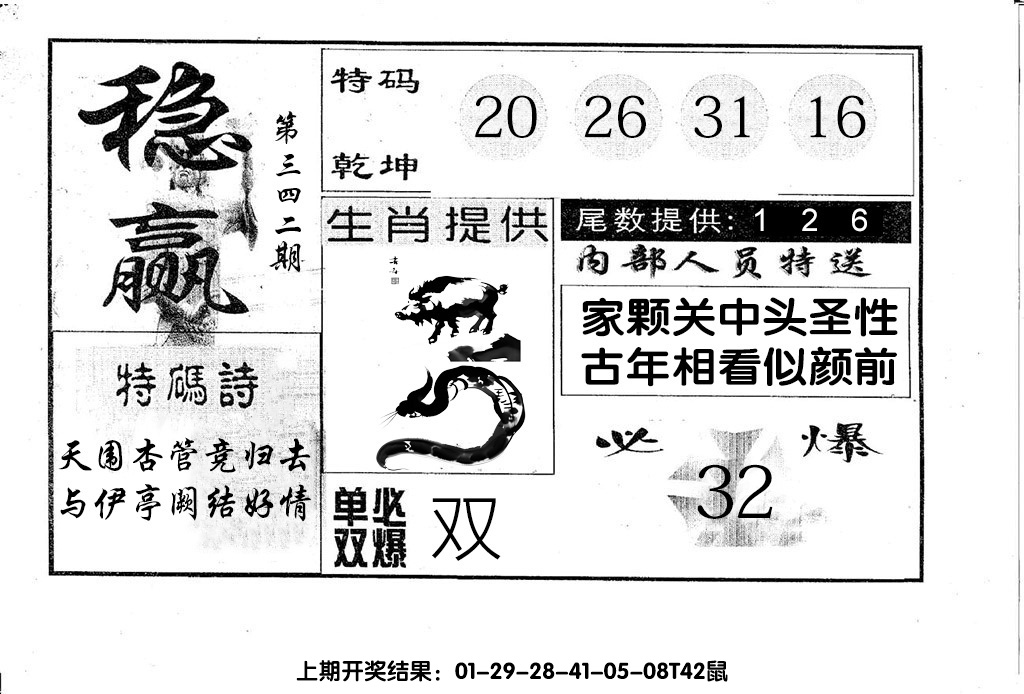 稳赢
第三四二期
特码诗
天围杏管竞归去
与伊亭阙结好情
特码
乾坤
20 26 31 16
生肖提供
单双
必爆
双
尾数提供: 1 2 6
内部人员特送
家颗关中头圣性
古年相看似颜前
必爆
32
上期开奖结果：01-29-28-41-05-08T42鼠